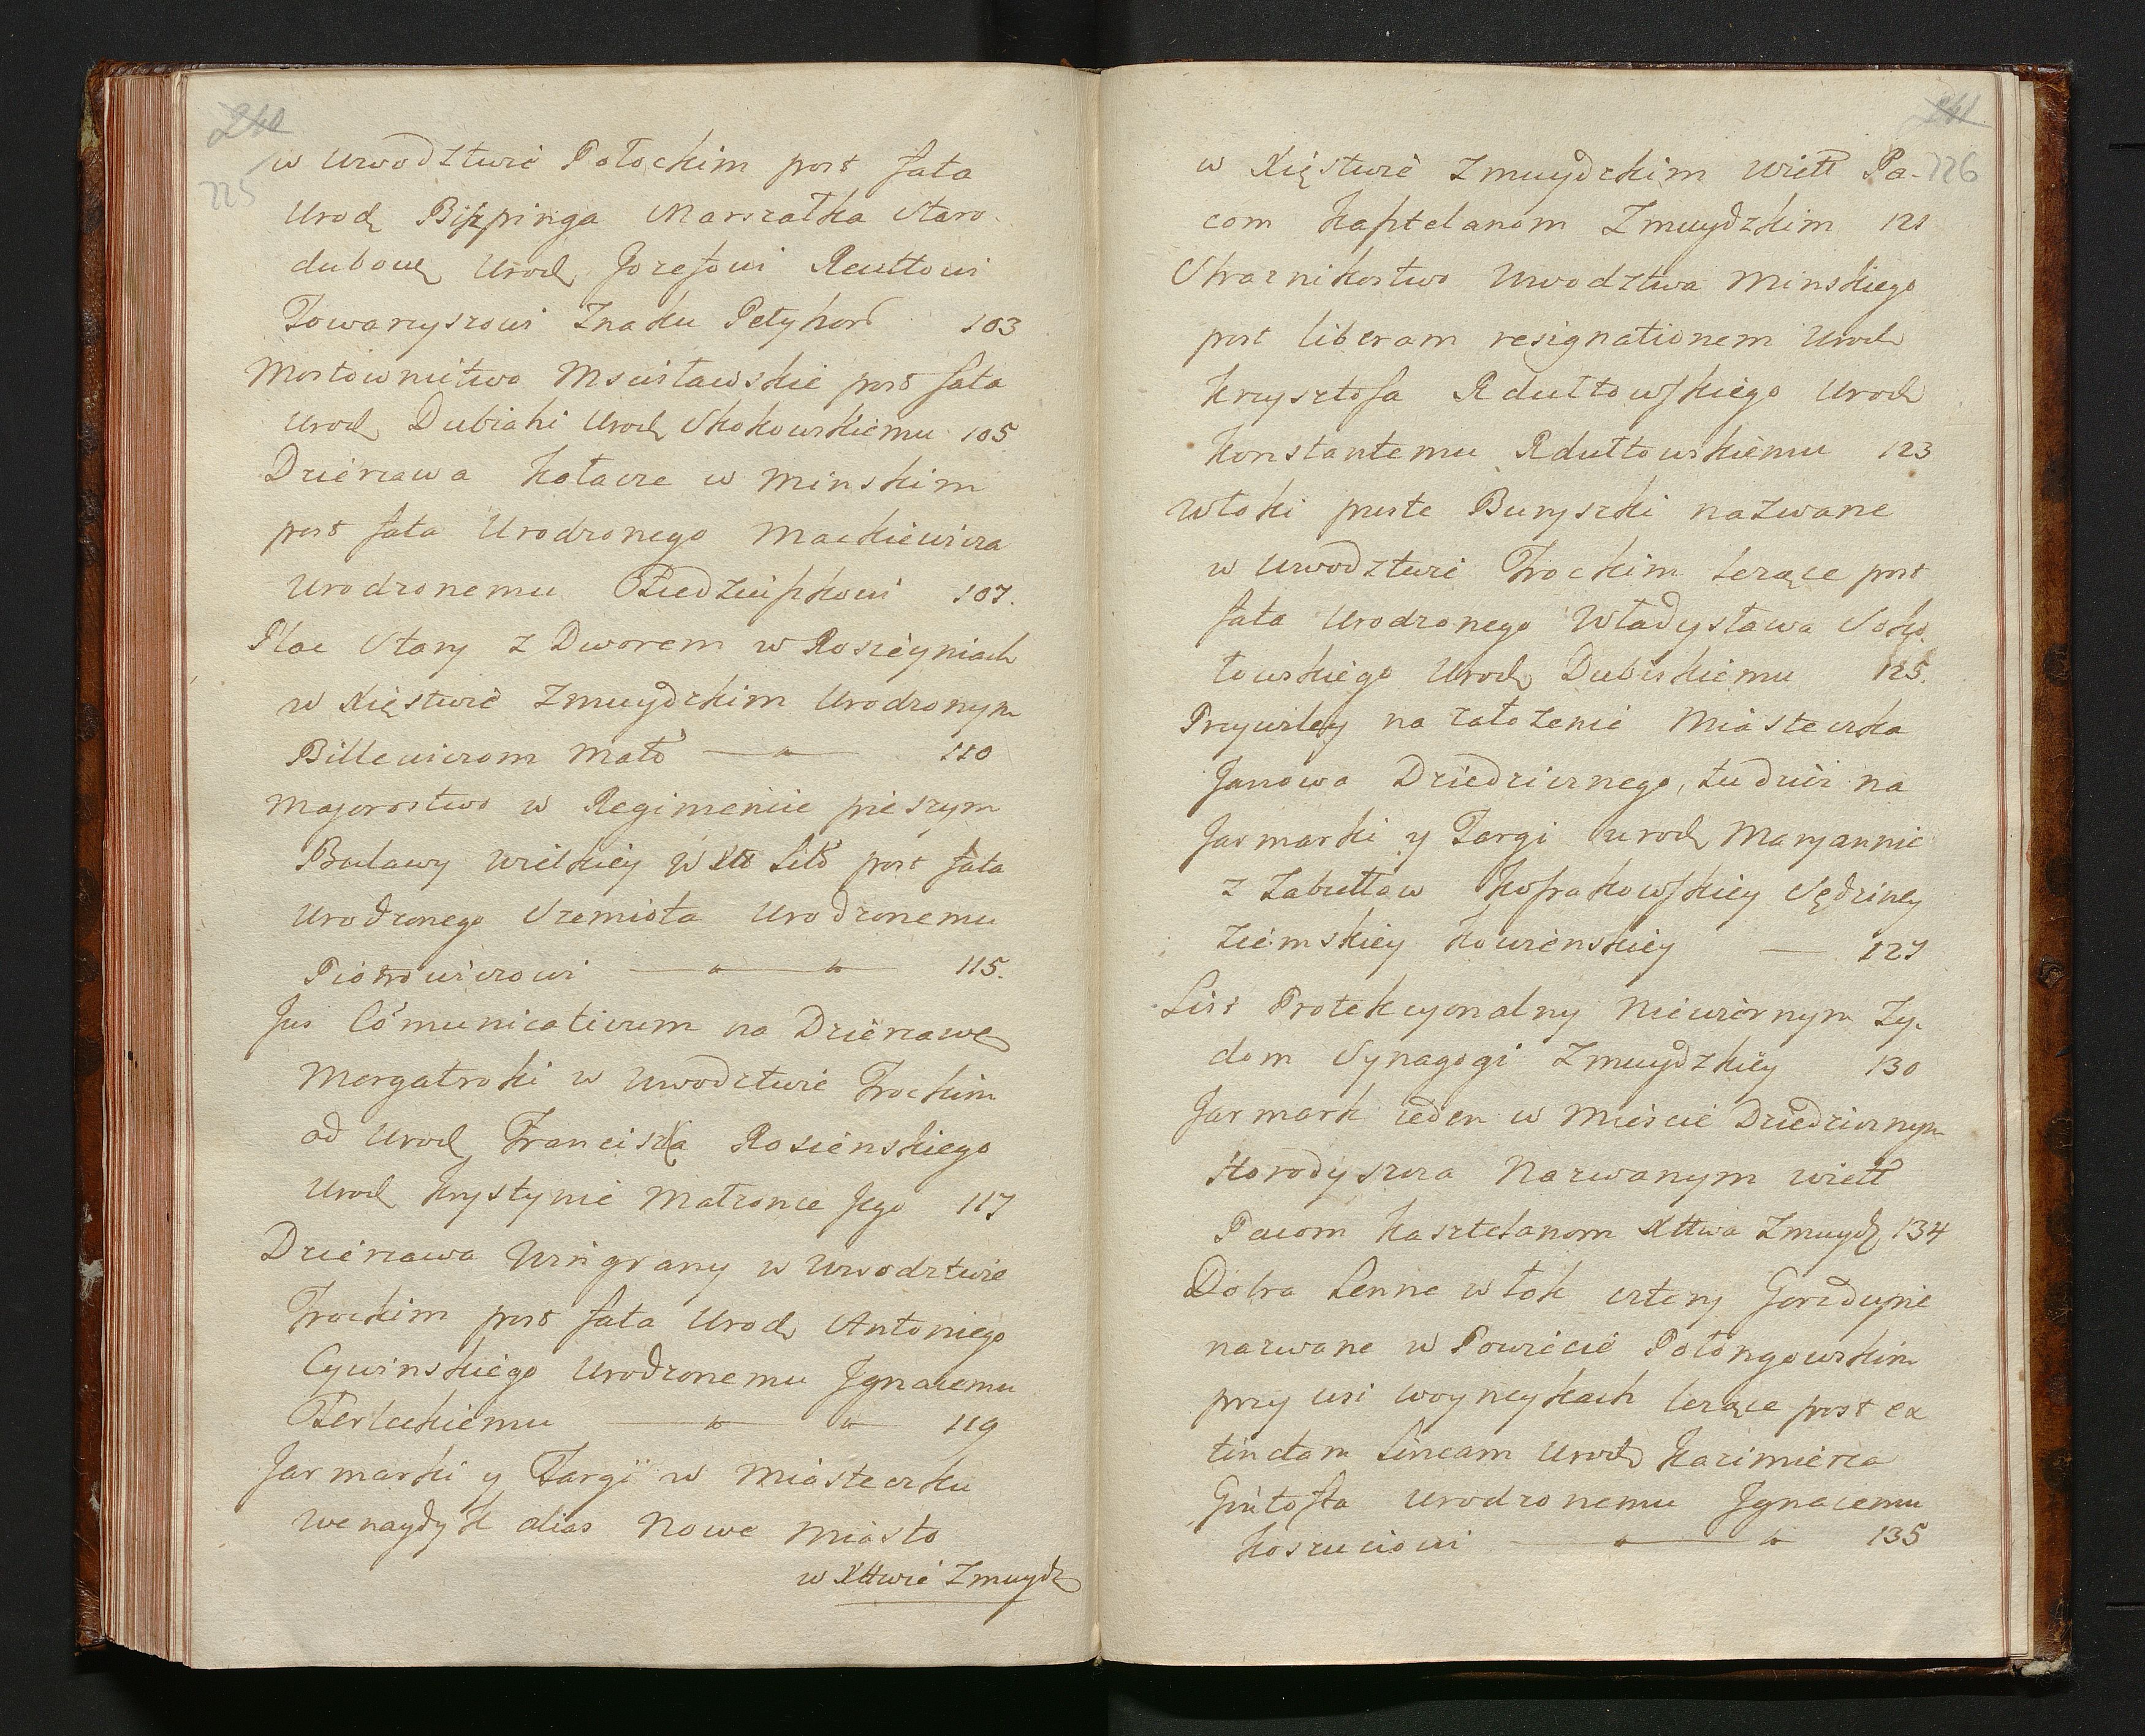 240
225
w Wwodztwie Połockim post fata
Urodz Bispinga Marszałka Staro-
dubow Urodz Jozefowi Reuttowi
Towarzyszowi Znaku Petyhor 103
Mostownictwo Mscisławskie post fata
Urodz Dubiahi Urodz Skokowskiemu 105
Dzierzawa Kołacze w Minskim
post fata Urodzonego Mackiewicza
Urodzonemu 107.
Plac Stary z Dworem w Rosieyniach
w Xięstwie Zmuydzkim Urodzonym
Billewiczom Małż 110
Majorostwo w Regimencie pieszym
Buławy wielkiey W Xa Litt post fata
Urodzonego Szemiota Urodzonemu
Piotrowiczowi 115.
Jus Cõmunicativum na Dzierzawę
Mergatroki w Wwodztwie Trockim
od Urodz Franciszka Rosienskiego
Urodz Krystynie Małzonce Jego 117
Dzierzawa Wingrany w Wwodztwie
Trockim post fata Urodz Antoniego
Cywinskiego Urodzonemu Jgnacemu
Terleckiemu 119
Jarmarki y Targi w Miasteczku
Wenaydyk alias Nowe Miasto
w Xttwie Zmuydz
241
226
w Xięstwie Zmuydzkim Wiell Pa-
com Kasztelanom Zmuydzkim 121
Straznikostwo Wwodztwa Minskiego
post liberam resignationem Urodz
Krzysztofa Rdułtowskiego Urodz
Konstantemu Rdułtowskiemu 123
Włoki puste Buryszki nazwane
w Wwodztwie Trockim lezące post
fata Urodzonego Władysława Soko-
łowskiego Urodz Dubiskiemu 125.
Przywiley na załozenie Miasteczka
Janowa Dziedzicznego, tudziez na
Jarmarki y Targi Urodz Maryannie
z Zabiełłow Kossakowskiey Sędziney
Ziemskiey Kowienskiey 127
List Protekcyonalny Niewiernym Zy-
dom Synagogi Zmuydzkiey 130
Jarmark ieden w Miescie Dziedzicznym
Horodyszcza Nazwanym Wiell
Pacom Kasztelanom Xttwa Zmuydz 134
Dobra Lenne włok cztery Gordupie
nazwane w Powiecie Połongowskim
przy wsi Woyneykach lezące post ex
tinctam Lineam Urodz Kazimierza
Gintofta Urodzonemu Jgnacemu
Koszuciowi 135